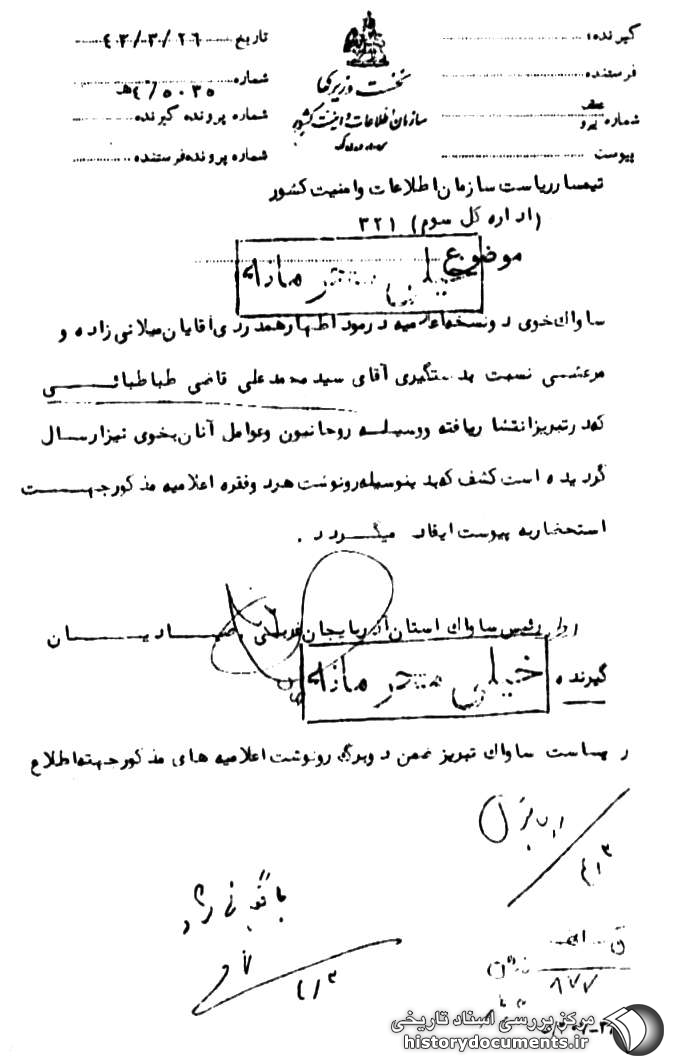 گیرنده:
فرستنده
شماره
پیوست
نخست وزیری
سازمان اطلاعات و امنیت کشور
س.ا.و.ا.ک
تاریخ ۴۳/۳/۲۶
شماره ۴/۵۰۳۵ھ
شماره پرونده گیرنده
شماره پرونده فرستنده
تیمسار ریاست سازمان اطلاعات و امنیت کشور
(اداره کل سوم) ۳۲۱
موضوع
خیلی محرمانه
ساواک خوی دو نسخه اعلامیه در مورد اظهار همدردی آقایان میلانی زاده و
مرعشی نسبت بدستگیری آقای سید محمد علی قاضی طباطبائی
که در تبریز انتشار یافته و وسیله روحانیون و عوامل آنان بخوی نیز ارسال
گردیده است کشف که بدینوسیله رونوشت هر دو فقره اعلامیه مذکور جهت
استحضار به پیوست ایفاد میگردد.
رئیس ساواک استان آذربایجان غربی
گیرنده
خیلی محرمانه
ریاست ساواک تبریز ضمن دو برگ رونوشت اعلامیه های مذکور جهت اطلاع
۴/۳
بایگانی شود
۴/۳
۸۷۷
مرکز بررسی اسناد تاریخی
historydocuments.ir